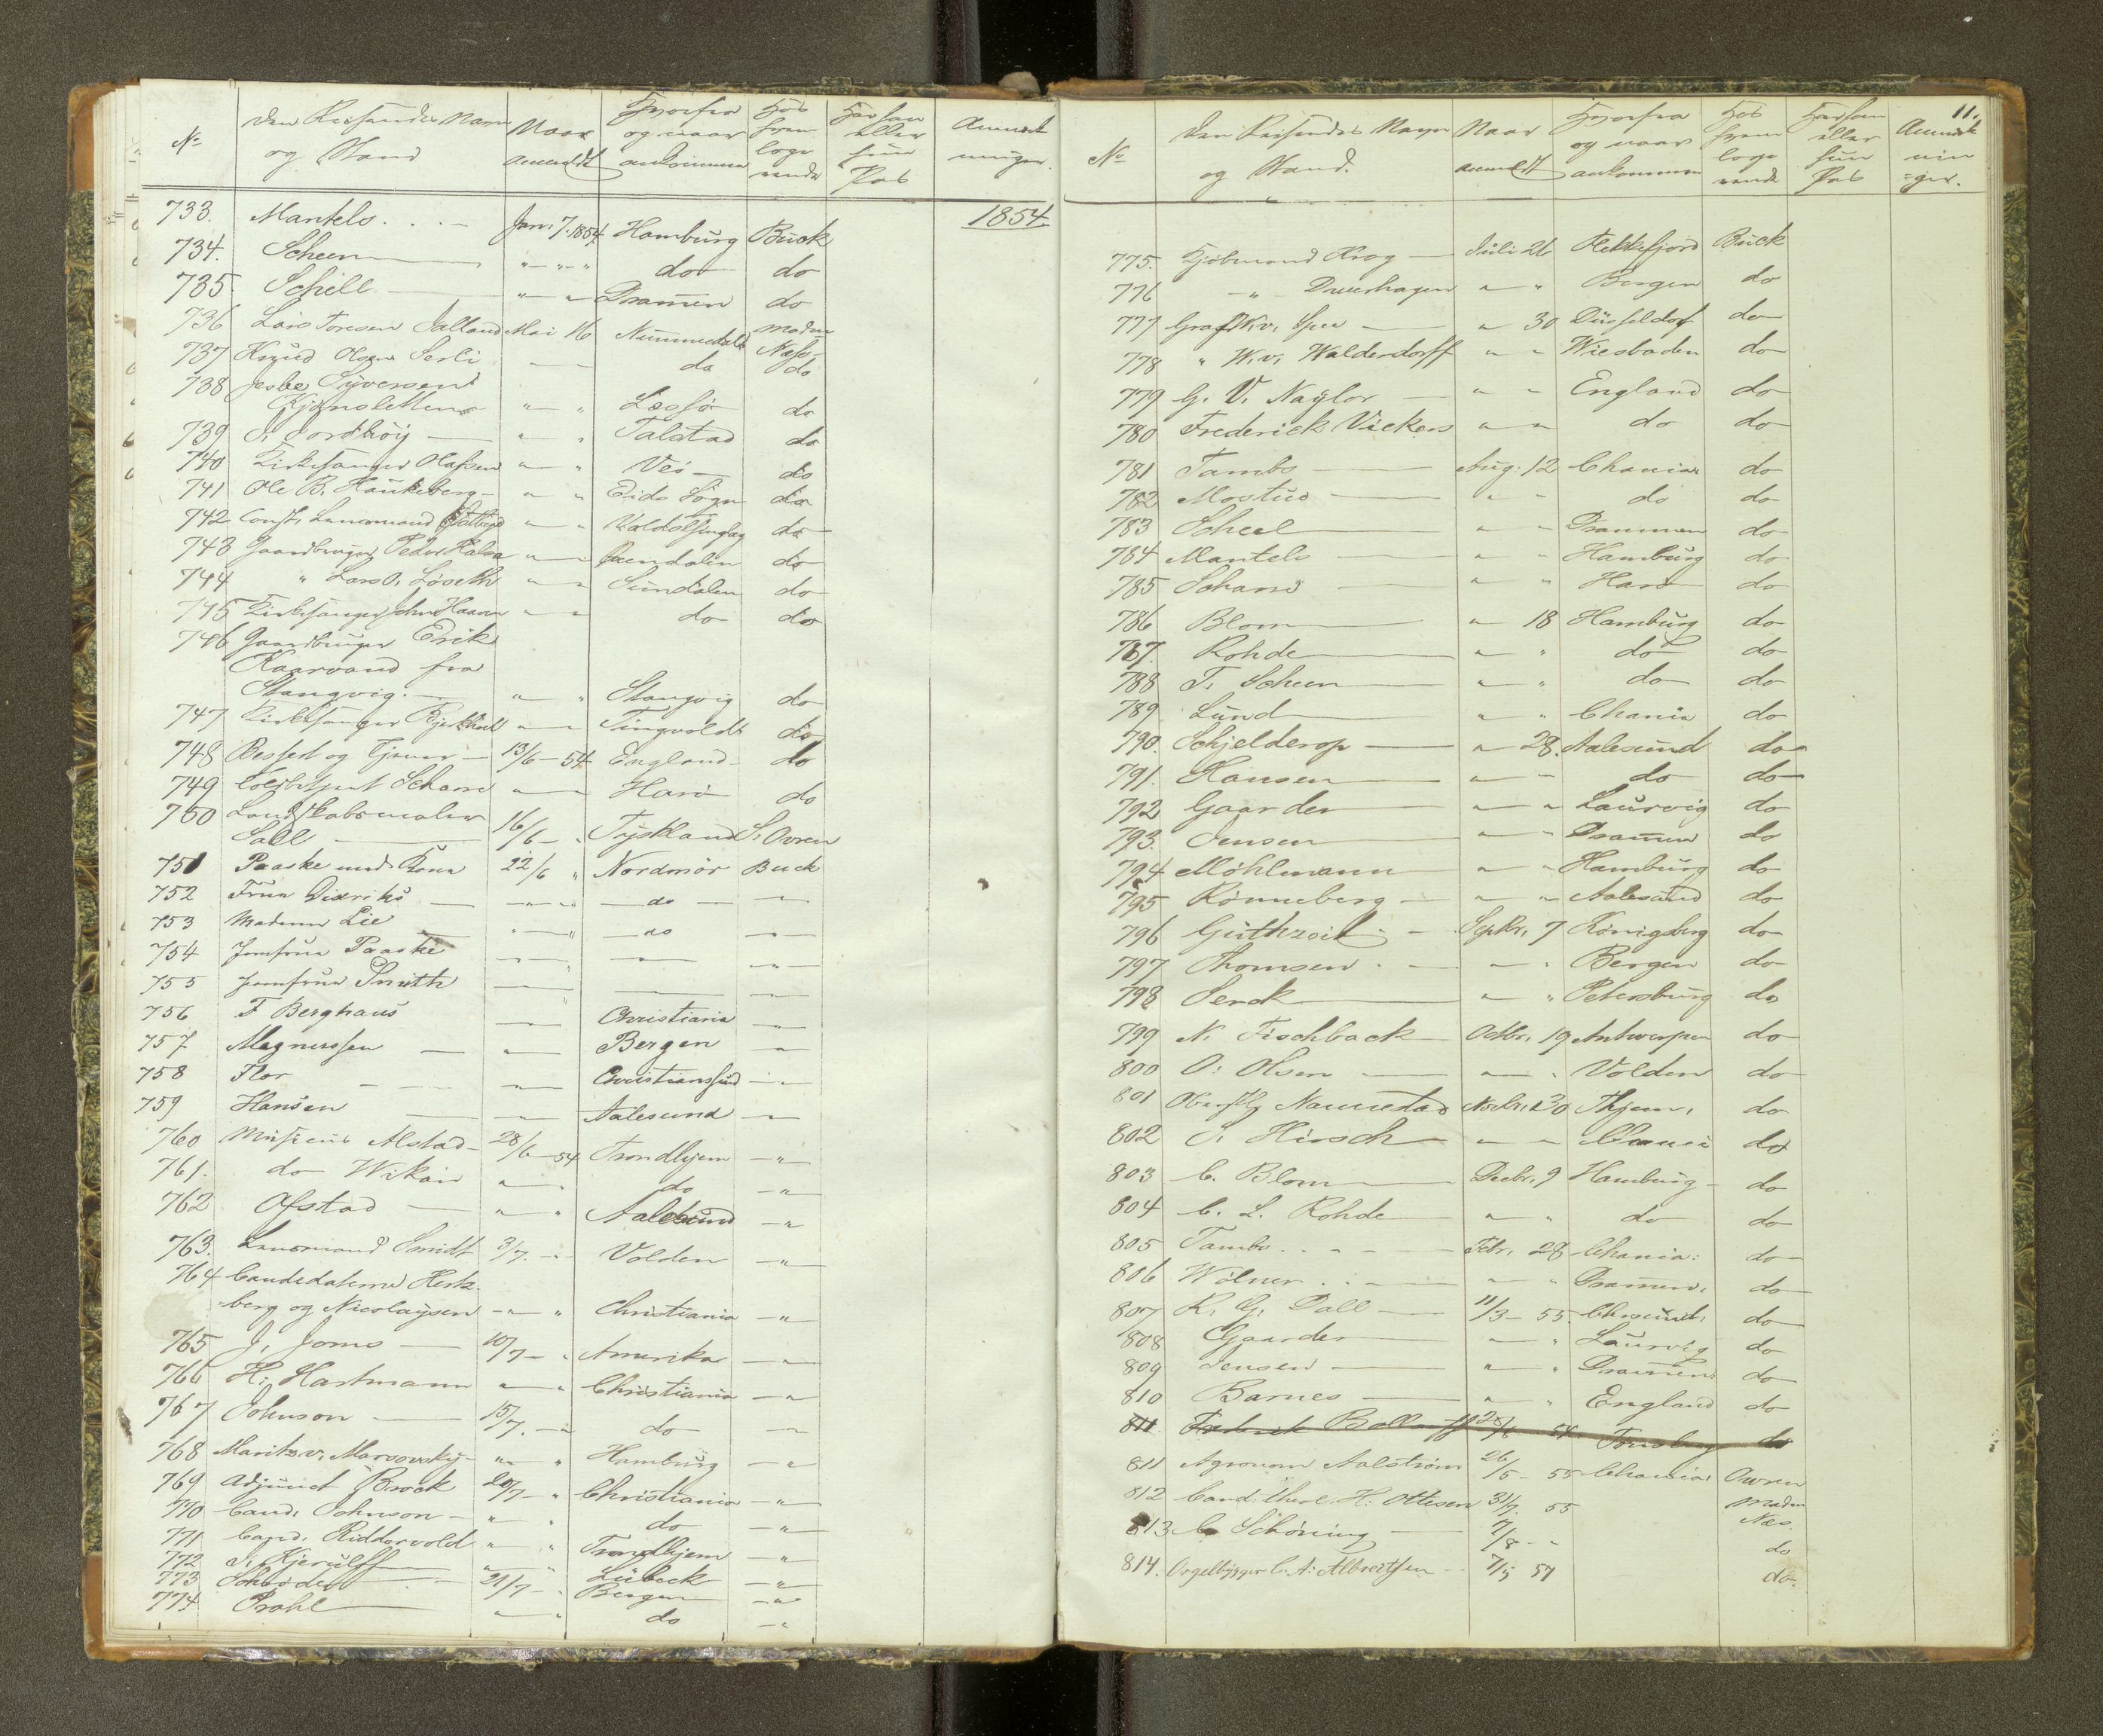 No
Den Reisendes Navn
og Stand
Naar
anmeldt
Hvorfra
og naar
ankommen
Hos
hvem
loge
rende
Har han
eller
hun
Pas
Anmærk
ninger.
1854
733. Mantels Jan: 7. 1854 Hamburg Buck
734. Scheen " " " do do
735. Schell " " Dramen do
736 Lars Toresen Mai 16 Nummedal Madm
Næss
737 Knud Olsen Serli do do
738 Syversen
" " Lessø do
739 " " Talstad do
740 Kirkesanger Olafsen " " Veø do
741 Ole B. Haukeberg " " Eids Sogn do
742 Const. Lensmand " " do
743 Gaardbruger Peder " " do
744 " Lars O. Løseth " " Sundalen do
745 Kirkesanger John Haaven " " do do
746 Gaardbruger Erik
Kaarvand fra
Stangvig. " " Stangvig do
747 Kirkesanger " " Tingvoldt do
748 Bessest og 13/6 - 54 England do
749 Schanw " Harø do
750 Landskabsmaler
Sall 16/6 - " Tyskland S. Owren
751 Paaske med Kone 22/6 " Nordmør Buck
752 Frue Dieriks " do "
753 Madame Lie " " do "
754 Jomfrue Paaske " "
755 Jomfrue Smith "
756 F Berghaus " Christiania "
757. Magnussen " Bergen "
758 Flor " Christianssund "
759 Hansen " Aalesund "
760 Musicus Alstad 28/6 - 54 Trondhjem "
761. do Wikan " " do "
762 Ofstad " " Aalesund "
763. Lensmand Smidt 3/7. - " Volden "
764 Candidaterne Hertz-
berg og Nicolaysen " " Christiania "
765 J. Joms 10/7 - " Amerika "
766 H. Hartmann " " Christiania "
767 Johnson 15/7. - " do "
768 Maritz v. Marsovsky " " Hamburg "
769 Adjunct Brock 20/7 - " Christiania "
770 Cand. Johnson " " do "
771 Cand. Riddervold " " Trondhjem "
772 J. Kjerulff " " Lübeck "
773 Schrøder 21/7 - " Bergen "
774 Prahl " " do "
11.
No
Den Reisendes Navn
og Stand.
Naar
anmeldt
Hvorfra
og naar
ankommen
Hos
hvem
loge
rende
Har han
eller
hun
Pas
Anmærk
nin
=ger.
775. Kjøbmand Krog Juli 26 Flekkefjord Buck
776 " " " Bergen do
777 Graf W. v. Spee " 30 Düsseldorf do
778 " W. v. Walderdorff " " Wiesbaden do
779 G. V. Naylor " " England do
780 Frederick Vickers " " do do
781 Tambs Aug: 12 Chania do
782 Mostue " " do do
783 Scheel " " Drammen do
784 Mantels " " Hamburg do
785 Schanw " " Harø do
786 Blom " 18 Hamburg do
787. Rohde " " do do
788 T. Scheen " " do do
789 Lund " " Chania do
790. Schjelderop " 28. Aalesund do
791. Hansen " " do do
792 Gaarder " " Laurvig do
793. Jensen " " Dramen do
794 Møhlmann " " Hamburg do
795 Rønneberg " " Aalesund do
796 Guthzeit Septbr. 7 Königsberg do
797 Thomsen " " Bergen do
798 Serck " " Petersburg do
799 N. Fischback Octbr. 19 Antwerpen do
800 O. Olsen " " Volden do
801 Naumestad Novbr. 30 Thjem. do
802 S. Hirsch " " Chania do
803 C. Blom Decbr. 9 Hamburg do
804 C. L. Rohde " " do do
805 Tambs Febr. 28 Chania: do
806 Wölner " " Dramen. do
807 R. G. Dall 11/3 - 55 Chrsund. do
808 Gaarder " " Laurvig do
809 Jensen " " Dramen do
810 Barnes " " England do
811 Frederik Tønsberg do
811 Agronom Aalstrøm 26/5 - 55 Chania: Owren
812 Cand. theol. H. Ottesen 31/7. 55 Madm
Næs.
813 C. Schöning 7/8 - " do
814. Orgelbygger C. A. Albrechtsen 7/5 57 do.